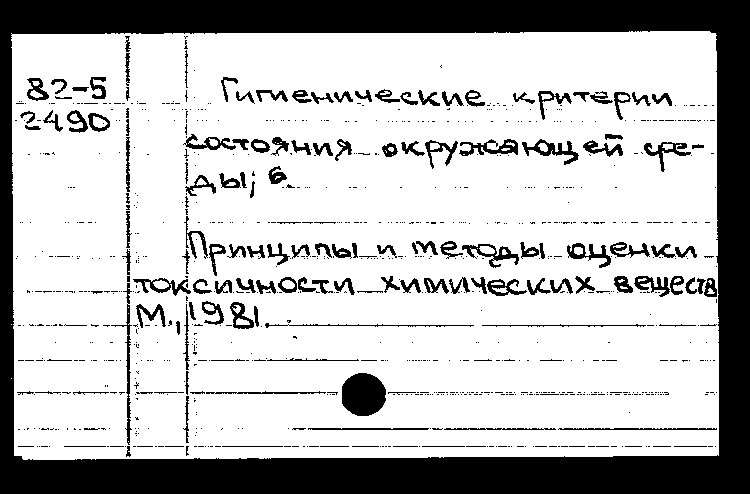 82-5 Гигиенические критерии
2490
состояния окружающей сре-
ды; 6.
Принципы и методы оценки
токсичности химических веществ
М., 1981.